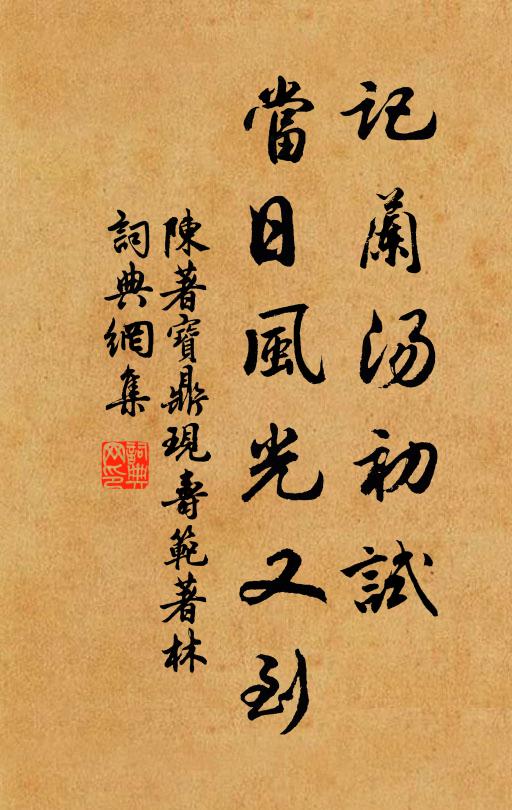 記蘭湯初試
當日風光又到
陳著寶鼎現壽範著林
詞典網集
詞典網印